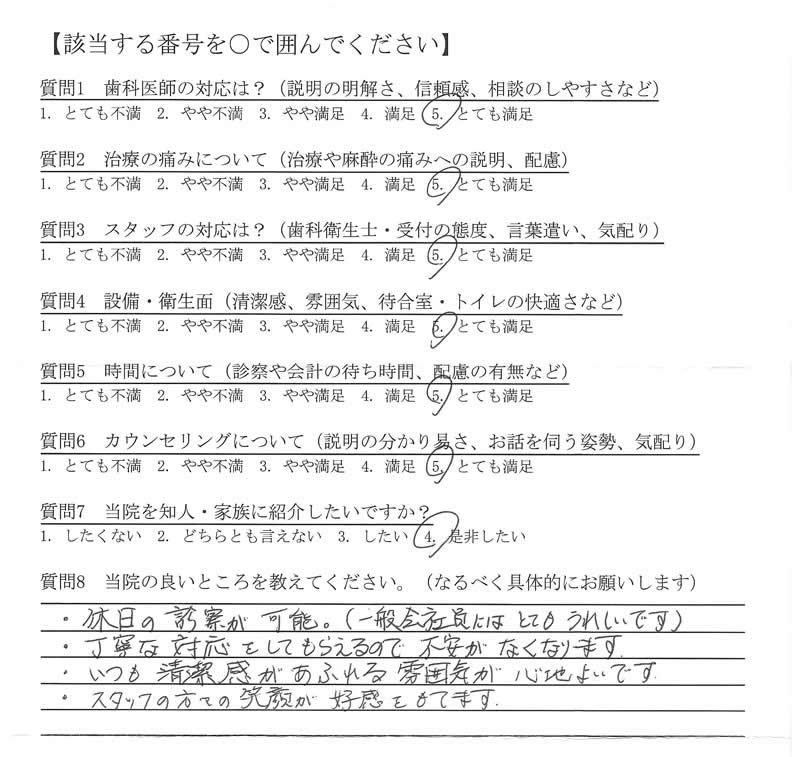 【該当する番号を○で囲んでください】
質問1　歯科医師の対応は？（説明の明解さ、信頼感、相談のしやすさなど）
1. とても不満　2. やや不満　3. やや満足　4. 満足　5. とても満足
質問2　治療の痛みについて（治療や麻酔の痛みへの説明、配慮）
1. とても不満　2. やや不満　3. やや満足　4. 満足　5. とても満足
質問3　スタッフの対応は？（歯科衛生士・受付の態度、言葉遣い、気配り）
1. とても不満　2. やや不満　3. やや満足　4. 満足　5. とても満足
質問4　設備・衛生面（清潔感、雰囲気、待合室・トイレの快適さなど）
1. とても不満　2. やや不満　3. やや満足　4. 満足　5. とても満足
質問5　時間について（診察や会計の待ち時間、配慮の有無など）
1. とても不満　2. やや不満　3. やや満足　4. 満足　5. とても満足
質問6　カウンセリングについて（説明の分かり易さ、お話を伺う姿勢、気配り）
1. とても不満　2. やや不満　3. やや満足　4. 満足　5. とても満足
質問7　当院を知人・家族に紹介したいですか？
1. したくない　2. どちらとも言えない　3. したい　4. 是非したい
質問8　当院の良いところを教えてください。（なるべく具体的にお願いします）
・休日の診察が可能。（一般会社員にはとてもうれしいです）
・丁寧な対応をしてもらえるので不安がなくなります.
・いつも清潔感があふれる雰囲気が心地よいです.
・スタッフの方々の笑顔が好感をもてます.